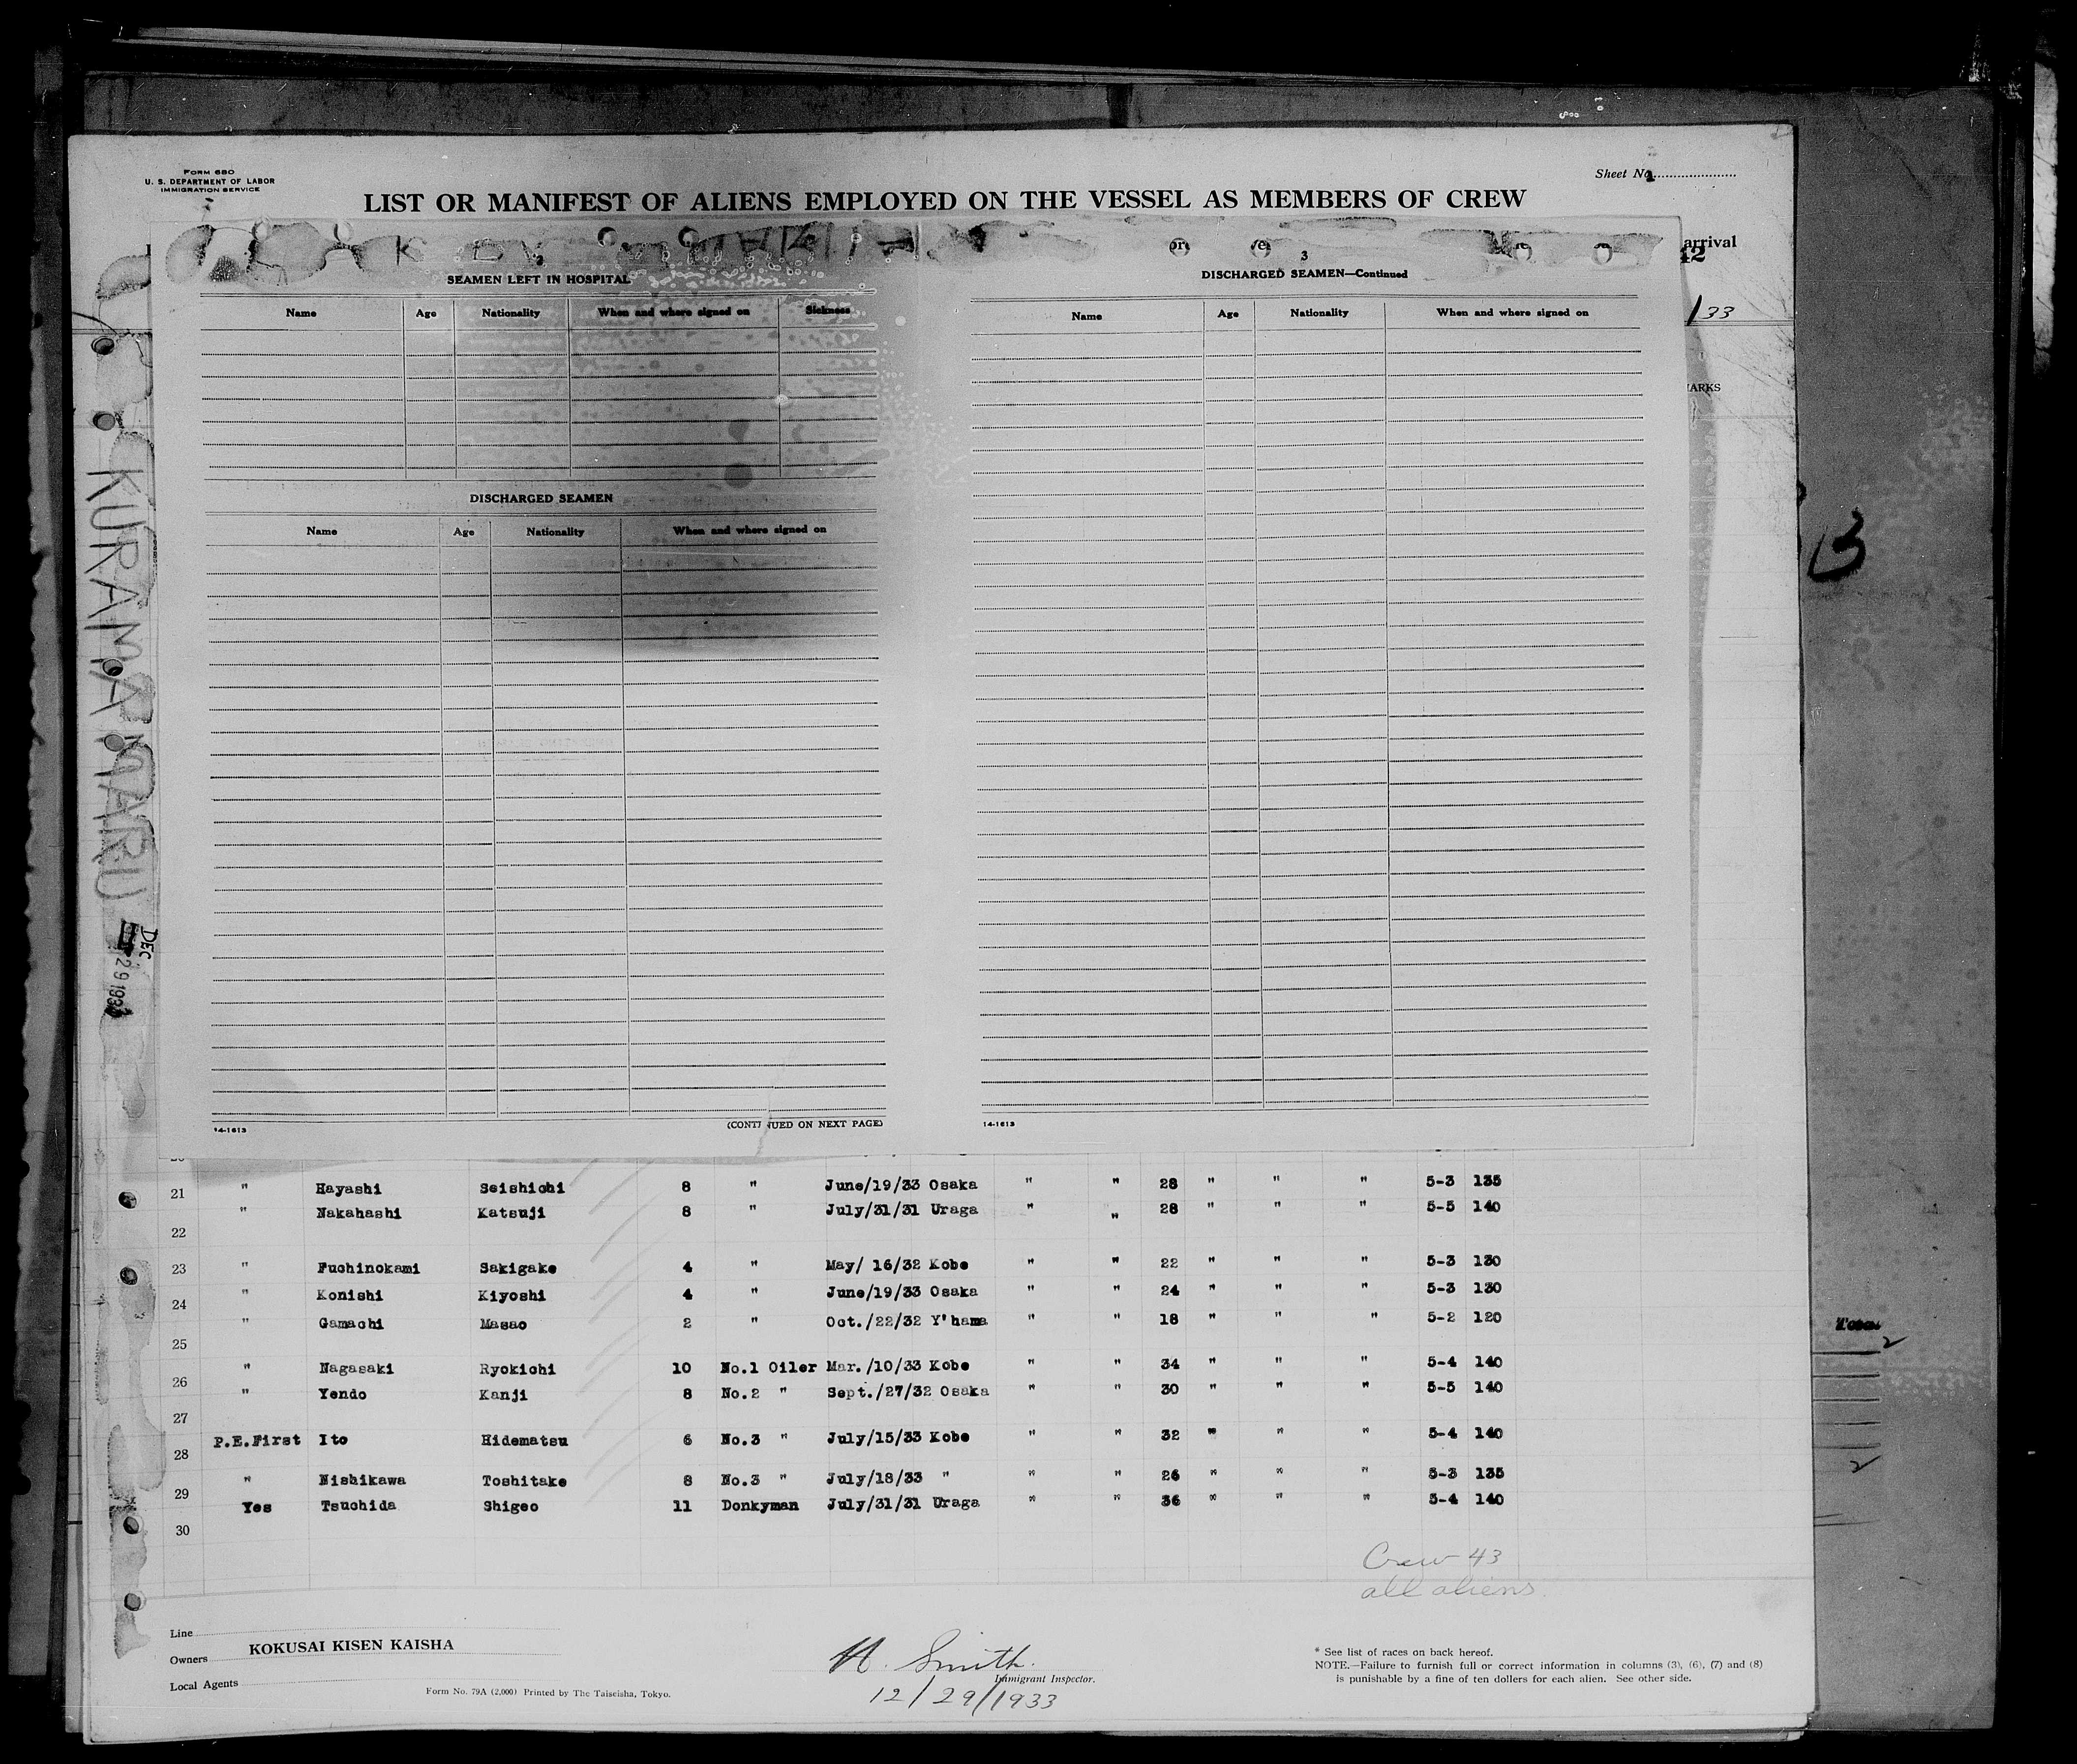 FORM 680
U. S. DEPARTMENT OF LABOR
IMMIGRATION SERVICE
Sheet No.
LIST OR MANIFEST OF ALIENS EMPLOYED ON THE VESSEL AS MEMBERS OF CREW
arrival
3
SEAMEN LEFT IN HOSPITAL
Name Age Nationality When and where signed on Sickness
DISCHARGED SEAMEN
Name Age Nationality When and where signed on
(CONTINUED ON NEXT PAGE)
14-1613
DISCHARGED SEAMEN—Continued
Name Age Nationality When and where signed on
14-1613
/33
ARKS
13
KURAMA MARU
DEC 29 1933
21 " Hayashi Seishichi 8 " June/19/33 Osaka " " 28 " " " 5-3 135
22 " Nakahashi Katsuji 8 " July/31/31 Uraga " " 28 " " " 5-5 140
23 " Fuchinokami Sakigake 4 " May/ 16/32 Kobe " " 22 " " " 5-3 130
24 " Konishi Kiyoshi 4 " June/19/33 Osaka " " 24 " " " 5-3 130
25 " Gamachi Masao 2 " Oct./22/32 Y'hama " " 18 " " " 5-2 120
26 " Nagasaki Ryokichi 10 No.1 Oiler Mar./10/33 Kobe " " 34 " " " 5-4 140
27 " Yendo Kanji 8 No.2 " Sept./27/32 Osaka " " 30 " " " 5-5 140
28 P.E.First Ito Hidematsu 6 No.3 " July/15/33 Kobe " " 32 " " " 5-4 140
29 " Nishikawa Toshitake 8 No.3 " July/18/33 " " " 26 " " " 5-3 135
30 Yes Tsuchida Shigeo 11 Donkyman July/31/31 Uraga " " 36 " " " 5-4 140
Crew 43
all aliens.
Line
Owners KOKUSAI KISEN KAISHA
Local Agents
Form No. 79A (2,000) Printed by The Taiseisha, Tokyo.
H. Smith.
Immigrant Inspector.
12/29/1933
* See list of races on back hereof.
NOTE.—Failure to furnish full or correct information in columns (3), (6), (7) and (8)
is punishable by a fine of ten dollars for each alien. See other side.
2
2